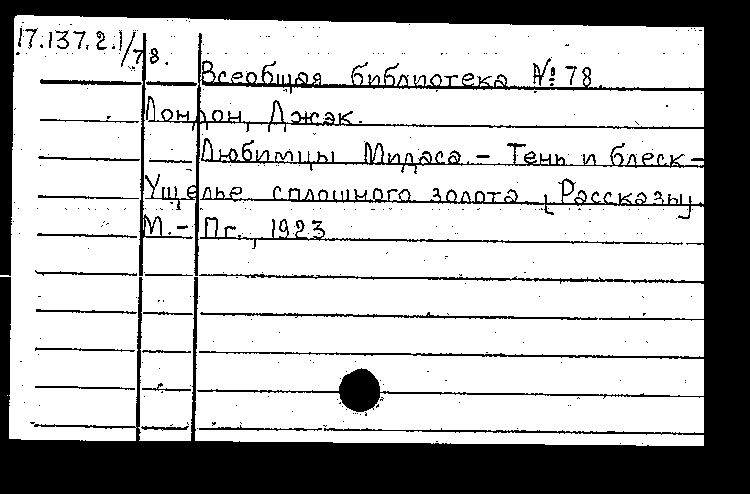 17.137.2.1/78.
Всеобщая библиотека № 78.
Лондон, Джек.
Любимцы Мидаса. – Тень и блеск –
Ущелье сплошного золота [Рассказы].
М. – Пг., 1923